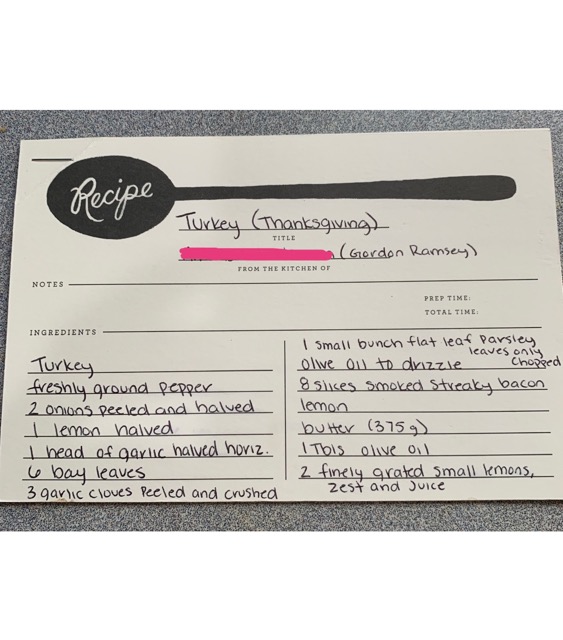 Recipe
Turkey (Thanksgiving)
TITLE
(Gordon Ramsey)
FROM THE KITCHEN OF
NOTES
PREP TIME:
TOTAL TIME:
INGREDIENTS
Turkey
freshly ground pepper
2 onions peeled and halved
1 lemon halved
1 head of garlic halved horiz.
6 bay leaves
3 garlic cloves peeled and crushed
1 small bunch flat leaf parsley
leaves only
chopped
olive oil to drizzle
8 slices smoked streaky bacon
lemon
butter (375g)
1 Tbls olive oil
2 finely grated small lemons,
zest and juice